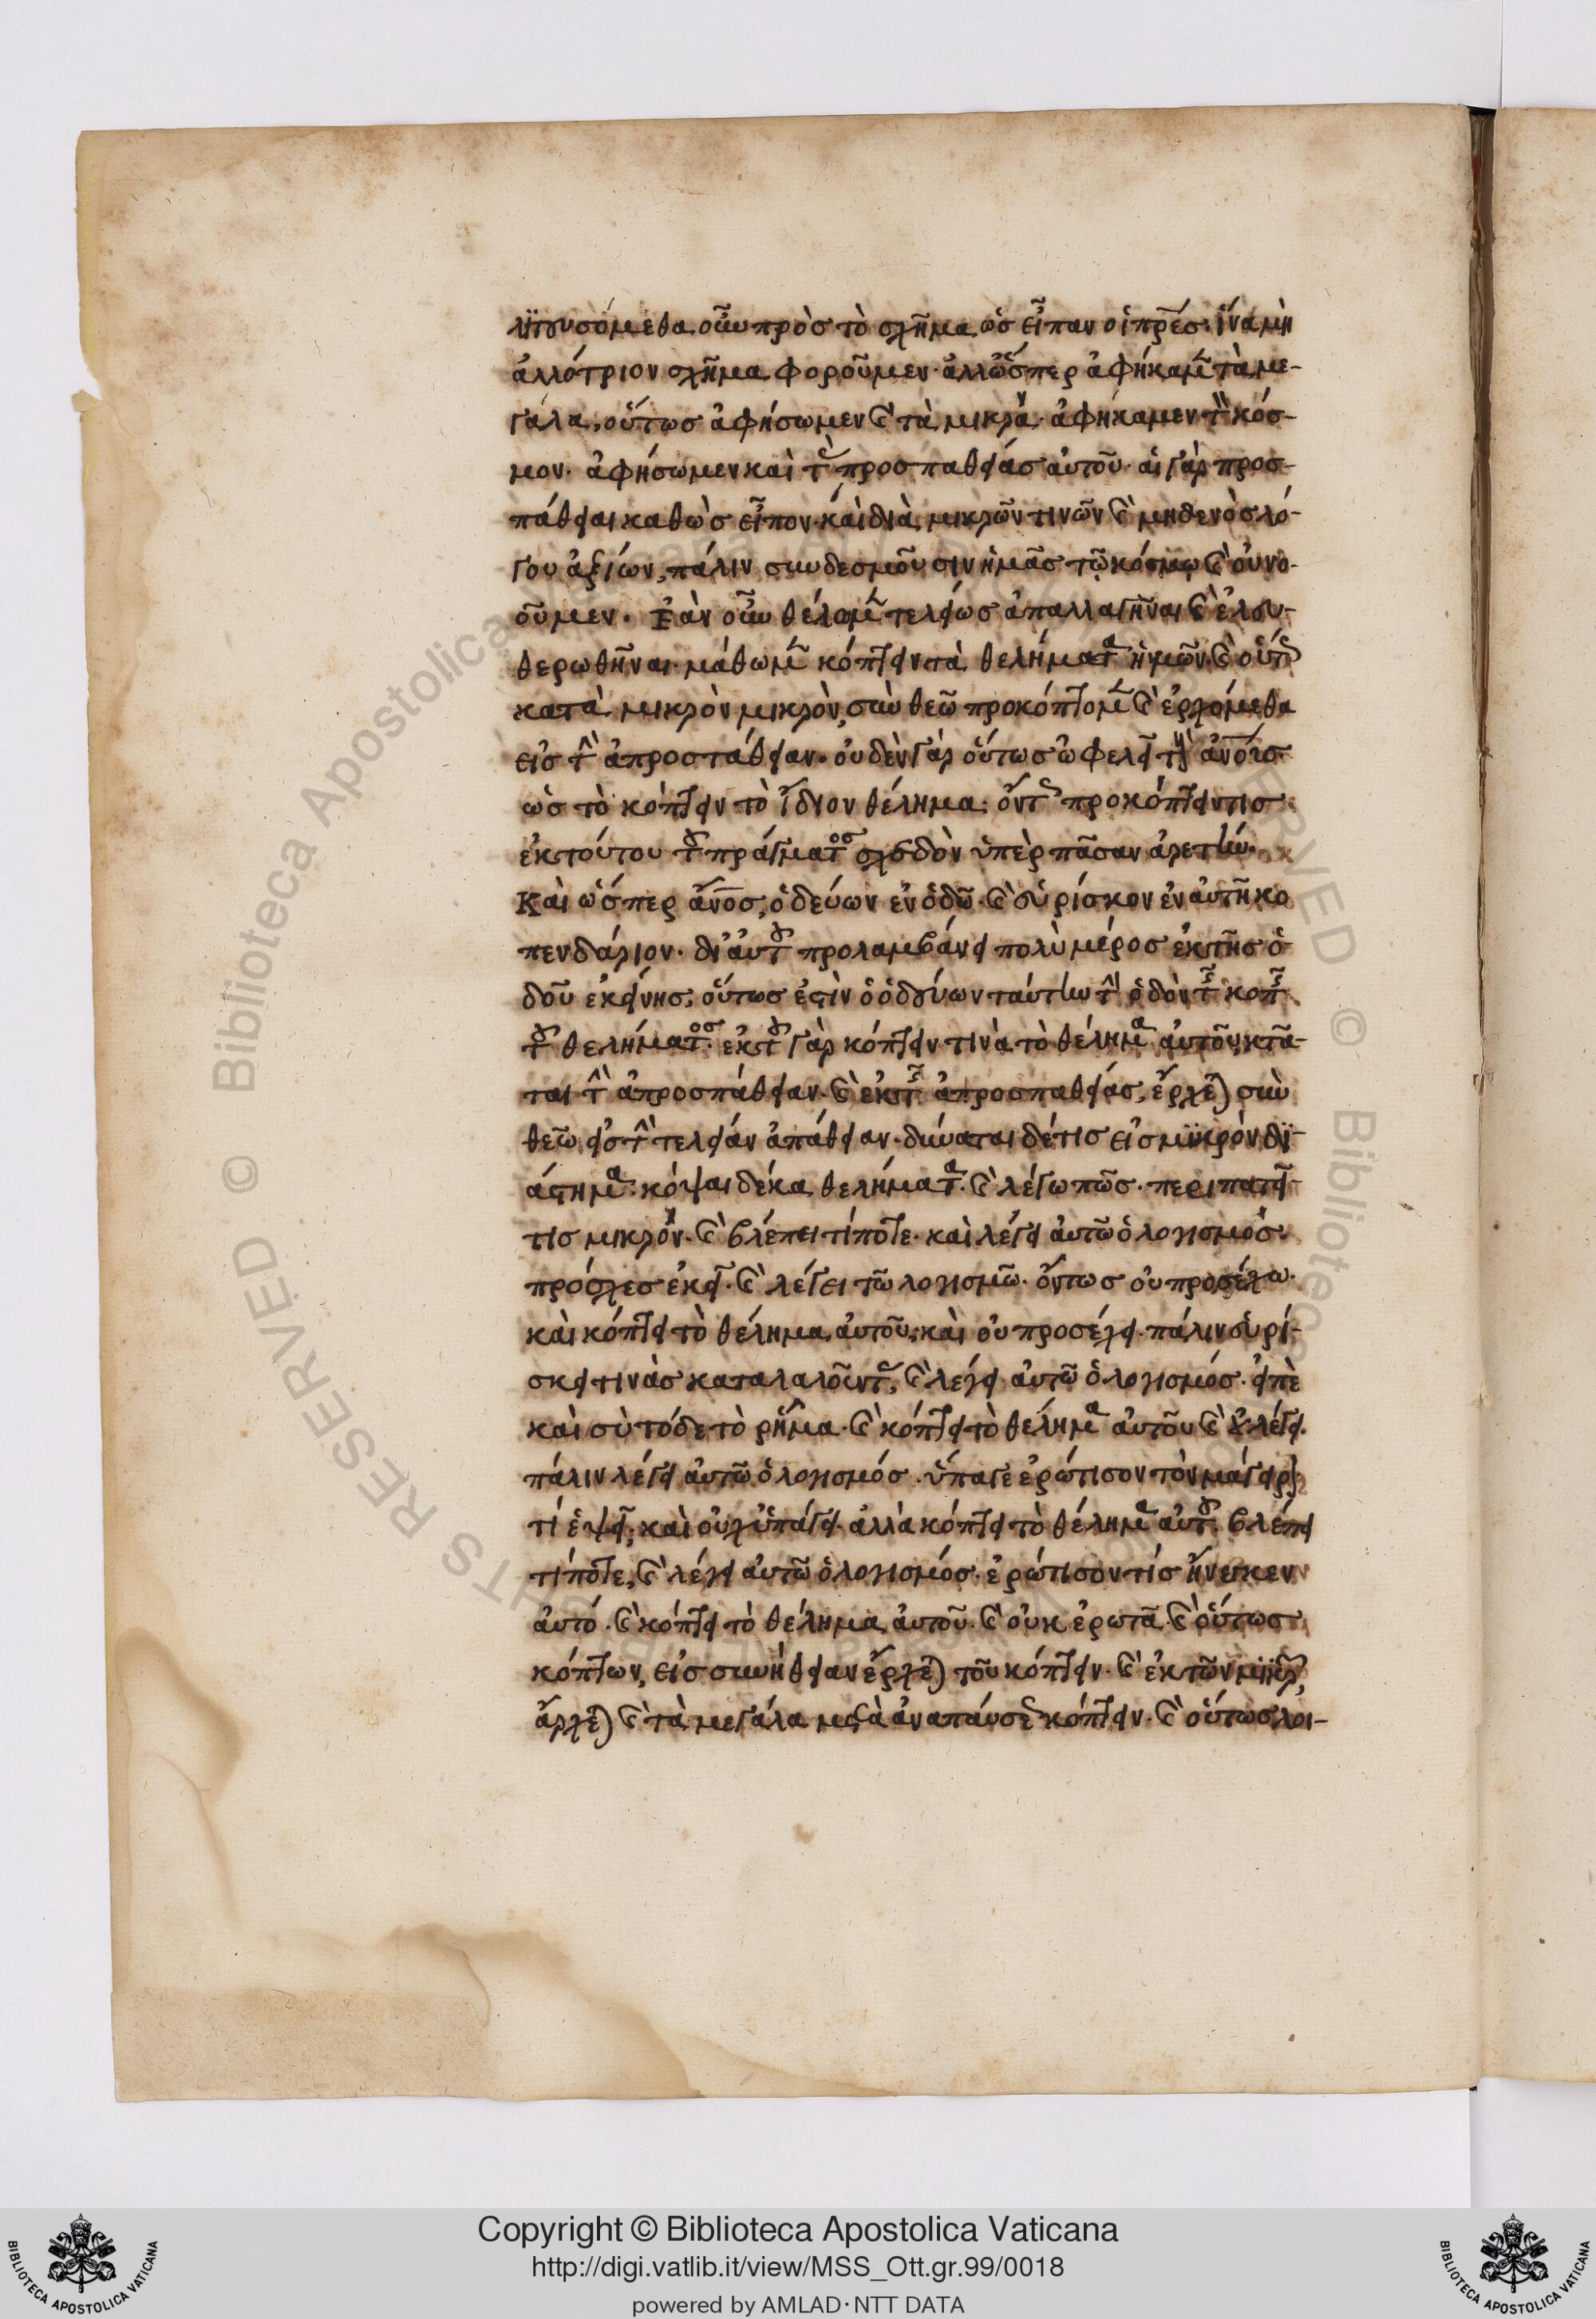 λϊτευσόμεθα οὖν πρὸς τὸ σχῆμα ὡς εἶπαν οἱ πρ̅ε̅ς· ἵνα μὴ
ἀλλότριον σχῆμα φοροῦμεν· ἀλλ' ὥσπερ ἀφήκαμεν τὰ με-
γάλα, οὕτως ἀφήσωμεν καὶ τὰ μικρά· ἀφήκαμεν τὸν κόσ-
μον· ἀφήσωμεν καὶ τὰς προσπαθείας αὐτοῦ· αἱ γὰρ προσ-
πάθειαι καθὼς εἶπον· καὶ διὰ μικρῶν τινῶν καὶ μηδενὸς λό-
γου ἀξίων, πάλιν συνδεσμοῦσιν ἡμᾶς τῷ κόσμῳ καὶ οὐ νο-
οῦμεν. Ἐὰν οὖν θέλομεν τελείως ἀπαλλαγῆναι καὶ ἐλευ-
θερωθῆναι· μάθωμεν κόπτειν τὰ θελήματα ἡμῶν· καὶ οὕτως
κατὰ μικρὸν μικρὸν, σὺν θεῶ προκόπτομεν καὶ ἐρχόμεθα
εἰς τὴν ἀπροσπάθειαν· οὐδὲν γὰρ οὕτως ὠφελεῖ τοὺς ἀν̅ο̅ι̅ς
ὡς τὸ κόπτειν τὸ ἴδιον θέλημα· ὄντως προκόπτει τις
ἐκ τούτου τοῦ πράγματος σχεδὸν ὑπὲρ πᾶσαν ἀρετήν.
Καὶ ὥσπερ ἄν̅ο̅ς, ὁδεύων ἐν ὁδῶ· καὶ εὑρίσκον ἐν αὐτῆ κο
πενδάριον· δι' αὐτοῦ προλαμβάνει πολὺ μέρος ἐκ τῆς ὁ-
δοῦ ἐκείνης, οὕτως ἐστὶν ὁ ὁδεύων ταύτην τὴν ὁδὸν τῆς κοπῆς
τοῦ θελήματος· ἐκ τοῦ γὰρ κόπτειν τινὰ τὸ θέλημα αὐτοῦ, κτᾶ-
ται τὴν ἀπροσπάθειαν· καὶ ἐκ τῆς ἀπροσπαθείας, ἔρχεται σὺν
θεῶ εἰς τὴν τελείαν ἀπάθειαν· δύναται δέ τις εἰς μϊκρὸν δϊ-
άστημα· κόψαι δέκα θελήματα· καὶ λέγω πῶς· περιπατεῖ
τις μικρόν· καὶ βλέπει τίποτε· καὶ λέγει αὐτῶ ὁ λογισμός·
πρόσχες ἐκεῖ· καὶ λέγει τῶ λογισμῶ· ὄντως οὐ προσέχω·
καὶ κόπτει τὸ θέλημα αὐτοῦ, καὶ οὐ προσέχει· πάλιν εὑρί-
σκει τινὰς καταλαλοῦντας, καὶ λέγει αὐτῶ ὁ λογισμός· εἰπὲ
καὶ σὺ τόδε τὸ ρῆμα· καὶ κόπτει τὸ θέλημα αὐτοῦ καὶ οὐ λέγει.
πάλιν λέγει αὐτῶ ὁ λογισμός· ὕπαγε ἐρώτισον τὸν μάγειρον
τί ἑψεῖ; καὶ οὐχ' ὑπάγει· ἀλλὰ κόπτει τὸ θέλημα αὐτοῦ· βλέπει
τίποτε, καὶ λέγει αὐτῶ ὁ λογισμός· ἐρώτισον τίς ἤνεγκεν
αὐτό· καὶ κόπτει τὸ θέλημα αὐτοῦ· καὶ οὐκ ἐρωτᾶ· καὶ οὕτως
κόπτων, εἰς συνήθειαν ἔρχεται τοῦ κόπτειν· καὶ ἐκ τῶν μϊκρῶν,
ἄρχεται καὶ τὰ μεγάλα μετὰ ἀναπαύσεως κόπτειν· καὶ οὕτως λοι-
Copyright © Biblioteca Apostolica Vaticana
http://digi.vatlib.it/view/MSS_Ott.gr.99/0018
powered by AMLAD·NTT DATA
BIBLIOTECA APOSTOLICA VATICANA
BIBLIOTECA APOSTOLICA VATICANA